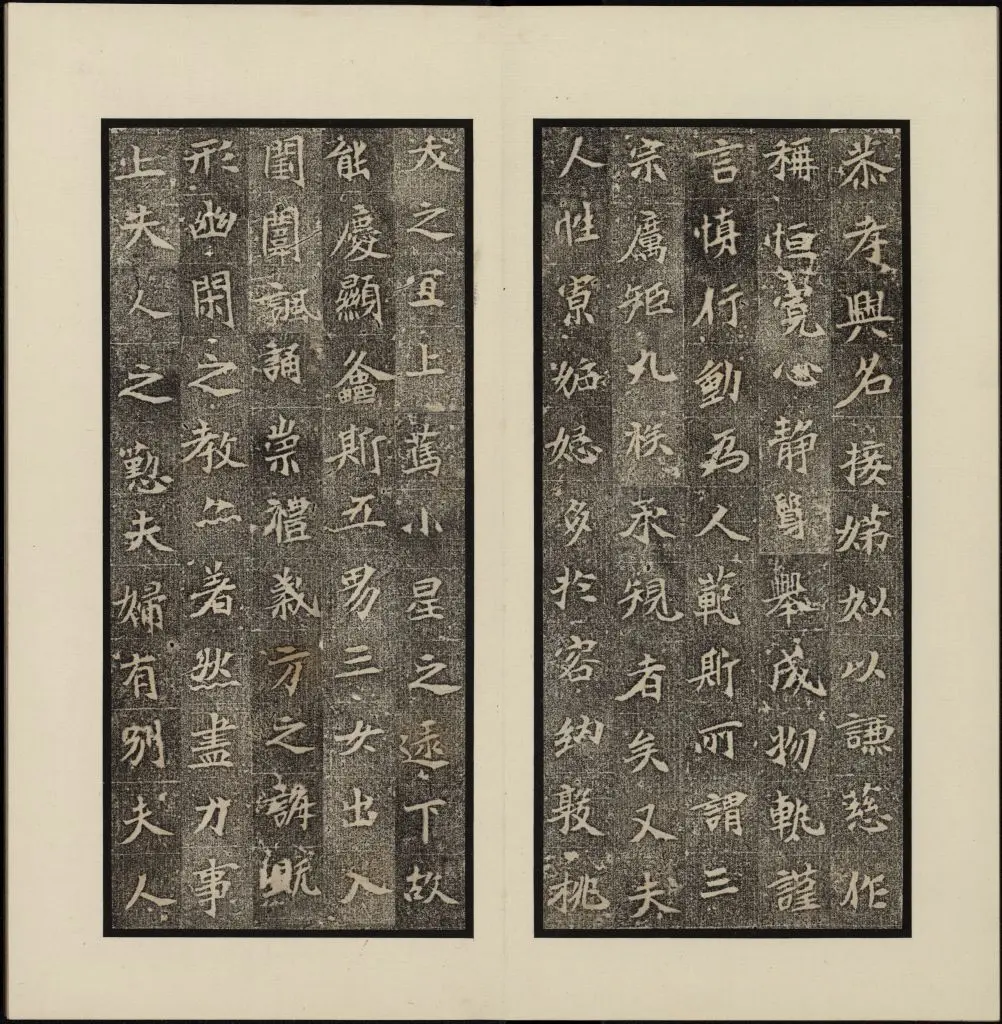 恭孝興名接娣姒以謙慈作
稱恒寬心静舉成物軌謹
言慎行動為人範斯所謂三
宗厲矩九族承規者矣又夫
人性寡妬多於容納敦桃
夭之宜上篤小星之遝下故
能慶顯螽斯五男三女出入
閨闈諷誦崇禮義方之誨既
形幽閑之教亦著然盡力事
上夫人之懃夫婦有別夫人